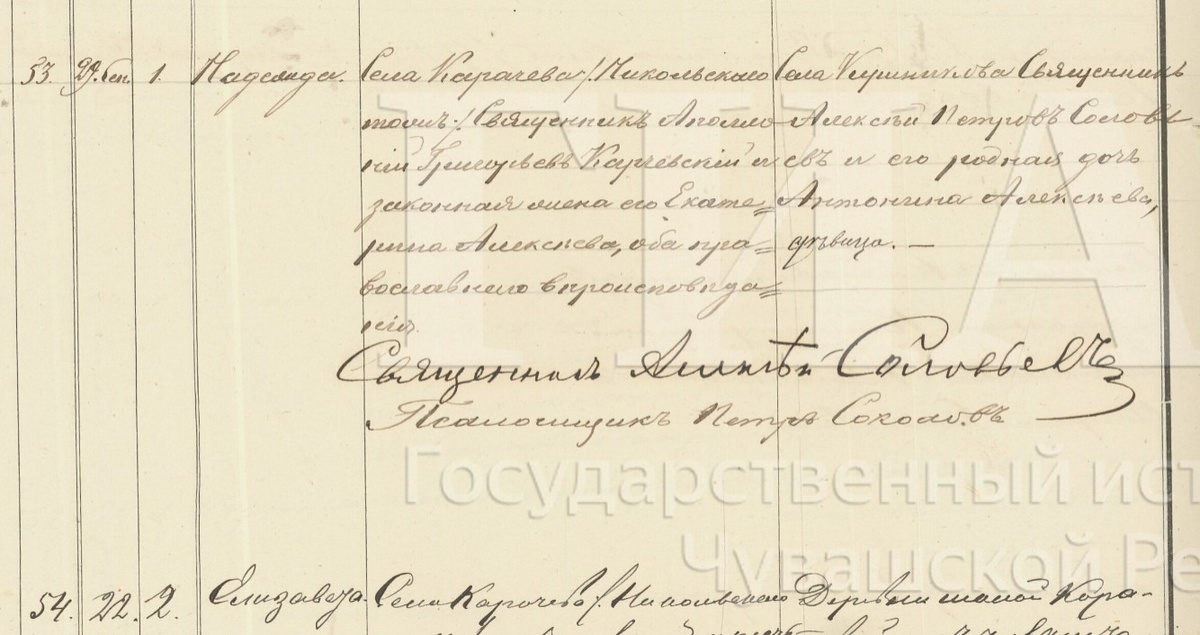 53. 29. Сен. 1. Надежда. Села Карачева /. Никольскаго Села Кушникова Священникъ
тожъ ./ Священникъ Аполло- Алексѣй Петровъ Соловь-
ній Григорьевъ Карчевскій и евъ и его родная дочь
законная жена его Екате= Антонина Алексѣева,
рина Алексѣева, оба пра= дѣвица. —
вославнаго вѣроисповѣда=
нія.
Священникъ Алексѣй Соловьевъ
Псаломщикъ Петръ Соколовъ
Государственный ист
Чувашской Ре
54. 22. 2. Елизавета. Села Карачева /. Никольскаго Деревни малой Кара-